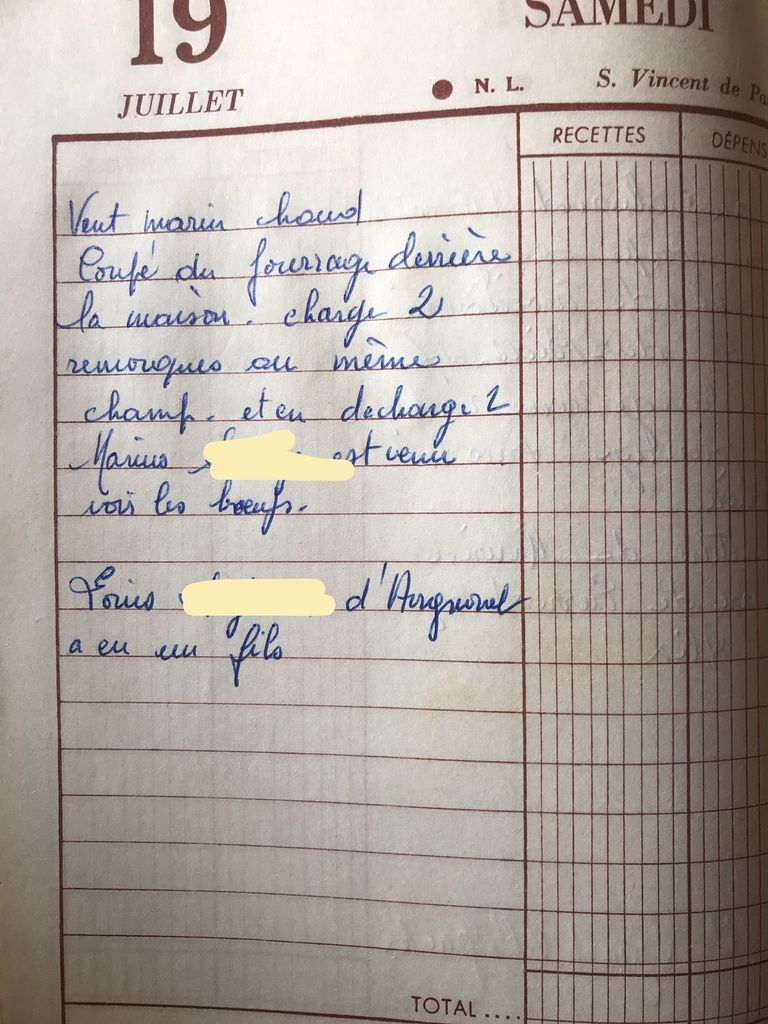 19
SAMEDI
JUILLET
N. L.
S. Vincent de Pa
RECETTES
DÉPENS
Vent marin chaud
Coupé du fourrage derrière
la maison. charge 2
remorques au même
champ. et en decharge 2
Marius est venu
voir les boeufs.
Louis d'Avignonet
a eu un fils
TOTAL ....